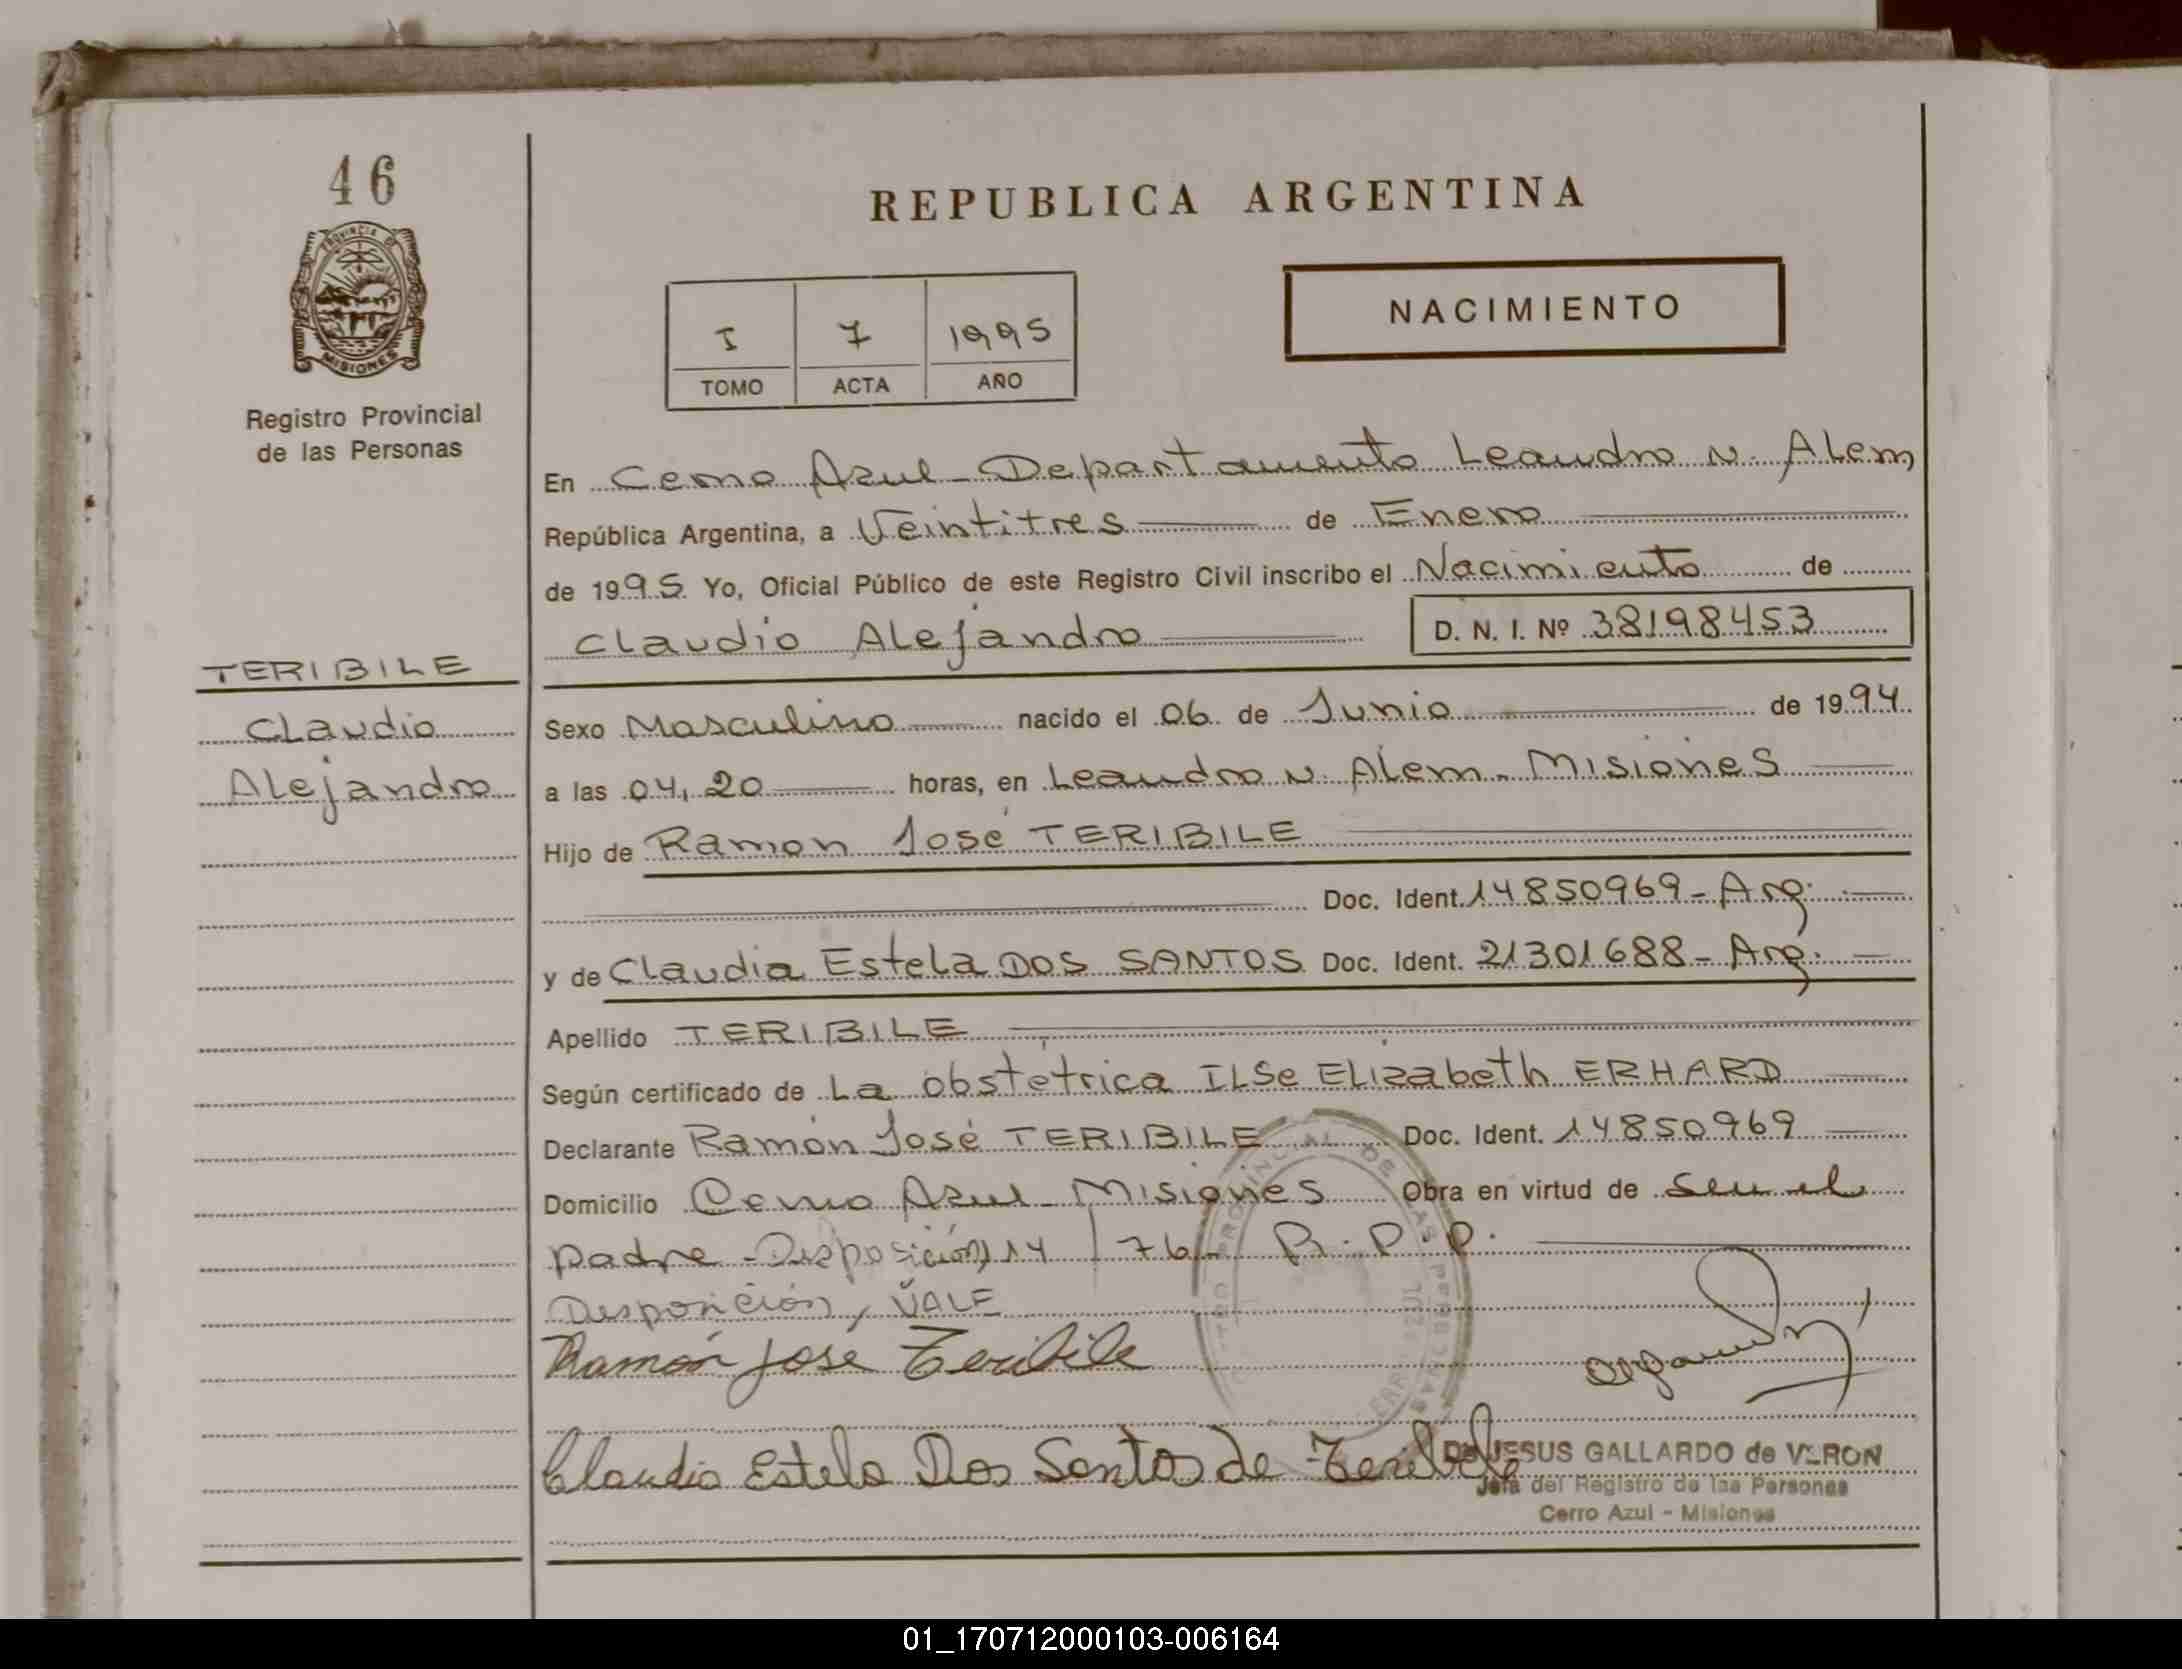 46
PROVINCIA DE
MISIONES
Registro Provincial
de las Personas
REPUBLICA ARGENTINA
I 7 1995
TOMO ACTA AÑO
NACIMIENTO
En Cerro Azul - Departamento Leandro N. Alem
República Argentina, a Veintitres de Enero
de 1995 Yo, Oficial Público de este Registro Civil inscribo el Nacimiento de
Claudio Alejandro D. N. I. Nº 38198453
TERIBILE
Claudio
Alejandro
Sexo Masculino nacido el 06 de Junio de 1994
a las 04,20 horas, en Leandro N. Alem - Misiones
Hijo de Ramon José TERIBILE
Doc. Ident. 14850969 - Arg.
y de Claudia Estela DOS SANTOS Doc. Ident. 21301688 - Arg.
Apellido TERIBILE
Según certificado de La obstétrica ILSe ELizabeth ERHARD
Declarante Ramón José TERIBILE Doc. Ident. 14850969
Domicilio Cerro Azul - Misiones Obra en virtud de ser el
padre - Disposición 14/76 - R.P.P.
Disposición, VALE
Ramón José Teribile
Claudia Estela Dos Santos de Teribile
JESUS GALLARDO de VERON
Jefa del Registro de las Personas
Cerro Azul - Misiones
01_170712000103-006164